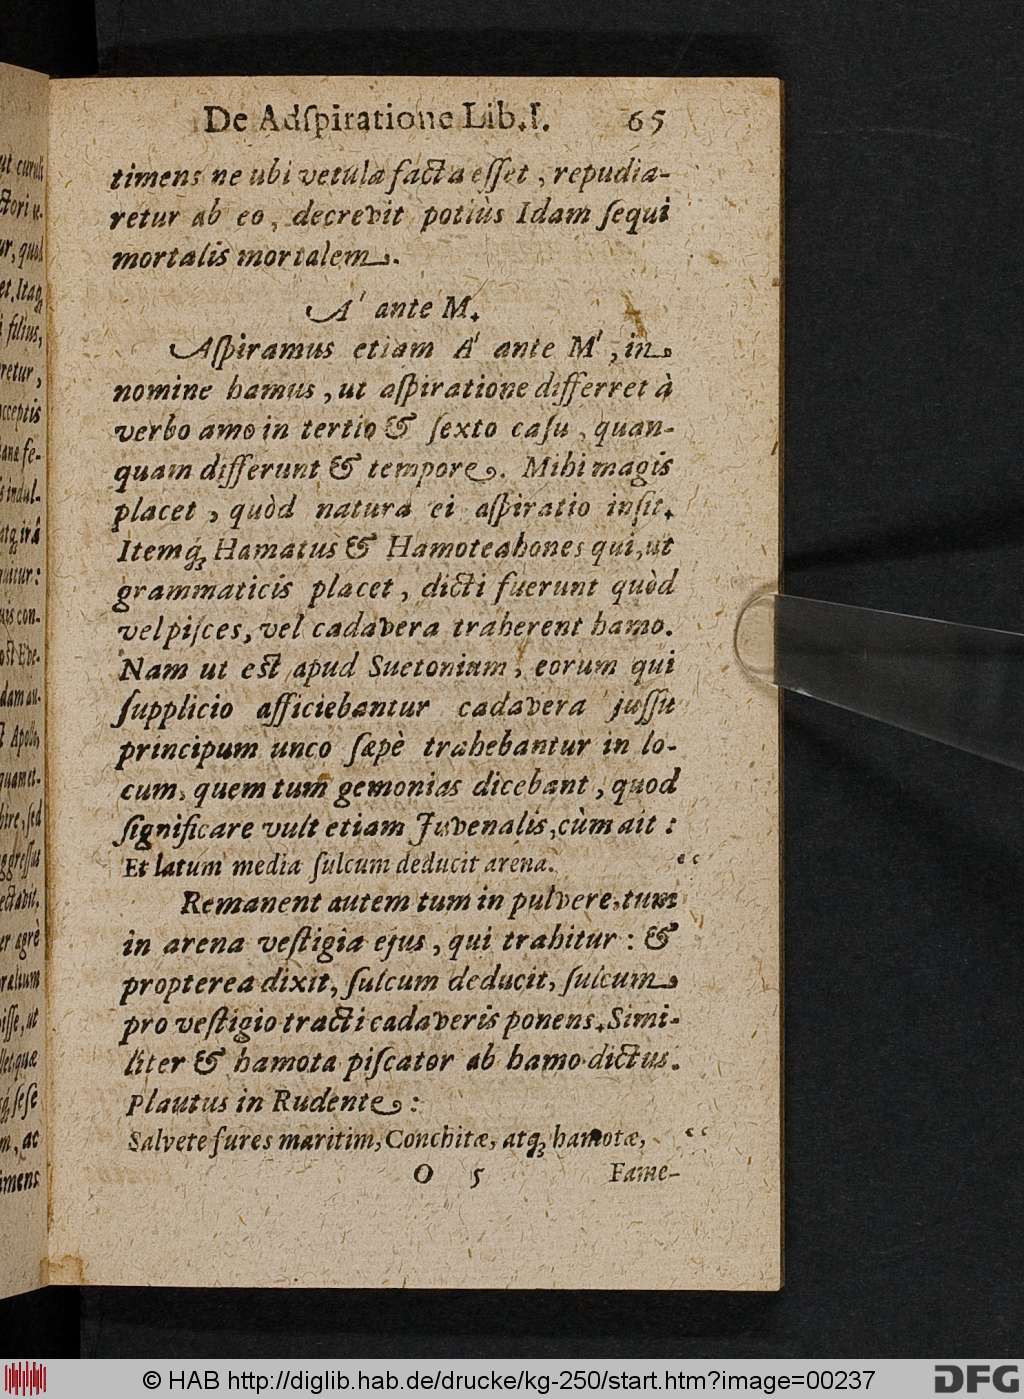 De Adſpiratione Lib.I. 65
timens ne ubi vetula facta eſſet, repudia-
retur ab eo, decrevit potiùs Idam ſequi
mortalis mortalem.
A' ante M.
Aſpiramus etiam A' ante M', in
nomine hamus, ut aſpiratione differret à
verbo amo in tertio & ſexto caſu, quan-
quam differunt & tempore. Mihi magis
placet, quòd natura ei aſpiratio inſit.
Itemq́; Hamatus & Hamoteahones qui, ut
grammaticis placet, dicti fuerunt quòd
vel piſces, vel cadavera traherent hamo.
Nam ut eſt apud Suetonium, eorum qui
ſupplicio afficiebantur cadavera juſſu
principum unco ſæpè trahebantur in lo-
cum, quem tum gemonias dicebant, quod
ſignificare vult etiam Juvenalis, cùm ait:
Et latum media ſulcum deducit arena. "
Remanent autem tum in pulvere, tum
in arena veſtigia ejus, qui trahitur: &
propterea dixit, ſulcum deducit, ſulcum
pro veſtigio tracti cadaveris ponens. Simi-
liter & hamota piſcator ab hamo dictus.
Plautus in Rudente:
Salvete fures maritim, Conchitæ, atq; hamotæ, "
O 5 Fame-
ut curuli
ctori ve-
ur, quod
et. Itaq;
filius,
retur,
acceptis
indul-
quitur:
con-
Eve-
dam au-
Apollo,
quam et-
bire, ſed
aggreſſus
ectavit,
er ægrè
iſſe, ut
quæ
q́; ſeſe
m, ac
timens
© HAB http://diglib.hab.de/drucke/kg-250/start.htm?image=00237
DFG